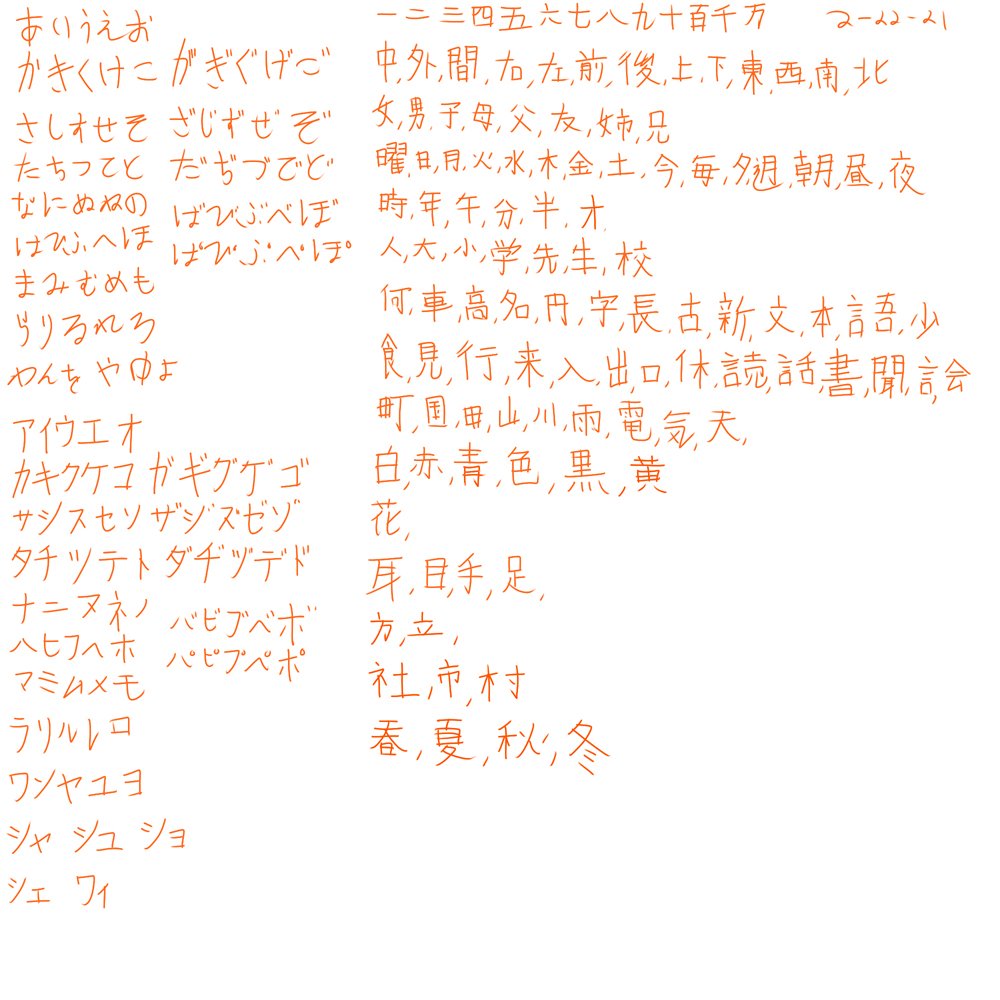 あいうえお
かきくけこ がぎぐげご
さしすせそ ざじずぜぞ
たちつてと だぢづでど
なにぬねの
はひふへほ ばびぶべぼ
ぱぴぷぺぽ
まみむめも
らりるれろ
わんを やゆよ
アイウエオ
カキクケコ ガギグゲゴ
サシスセソ ザジズゼゾ
タチツテト ダヂヅデド
ナニヌネノ
ハヒフヘホ バビブベボ
パピプペポ
マミムメモ
ラリルレロ
ワンヤユヨ
シャ シュ ショ
シェ ワィ
一二三四五六七八九十百千万 2-22-21
中,外,間,右,左,前,後,上,下,東,西,南,北
女,男,子,母,父,友,姉,兄
曜,日,月,火,水,木,金,土,今,毎,夕,週,朝,昼,夜
時,年,午,分,半,才,
人,大,小,学,先,生,校
何,車,高,名,円,字,長,古,新,文,本,語,少
食,見,行,来,入,出,口,休,読,話,書,聞,言,会
町,国,田,山,川,雨,電,気,天,
白,赤,青,色,黒,黄
花,
耳,目,手,足,
方,立,
社,市,村
春,夏,秋,冬